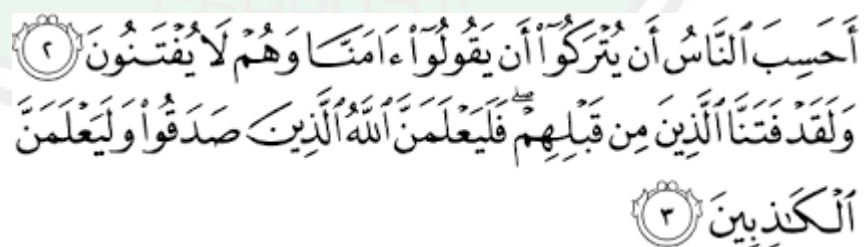 أَحَسِبَ ٱلنَّاسُ أَن يُتْرَكُوٓا۟ أَن يَقُولُوٓا۟ ءَامَنَّا وَهُمْ لَا يُفْتَنُونَ ٢
وَلَقَدْ فَتَنَّا ٱلَّذِينَ مِن قَبْلِهِمْ ۖ فَلَيَعْلَمَنَّ ٱللَّهُ ٱلَّذِينَ صَدَقُوا۟ وَلَيَعْلَمَنَّ
ٱلْكَـٰذِبِينَ ٣